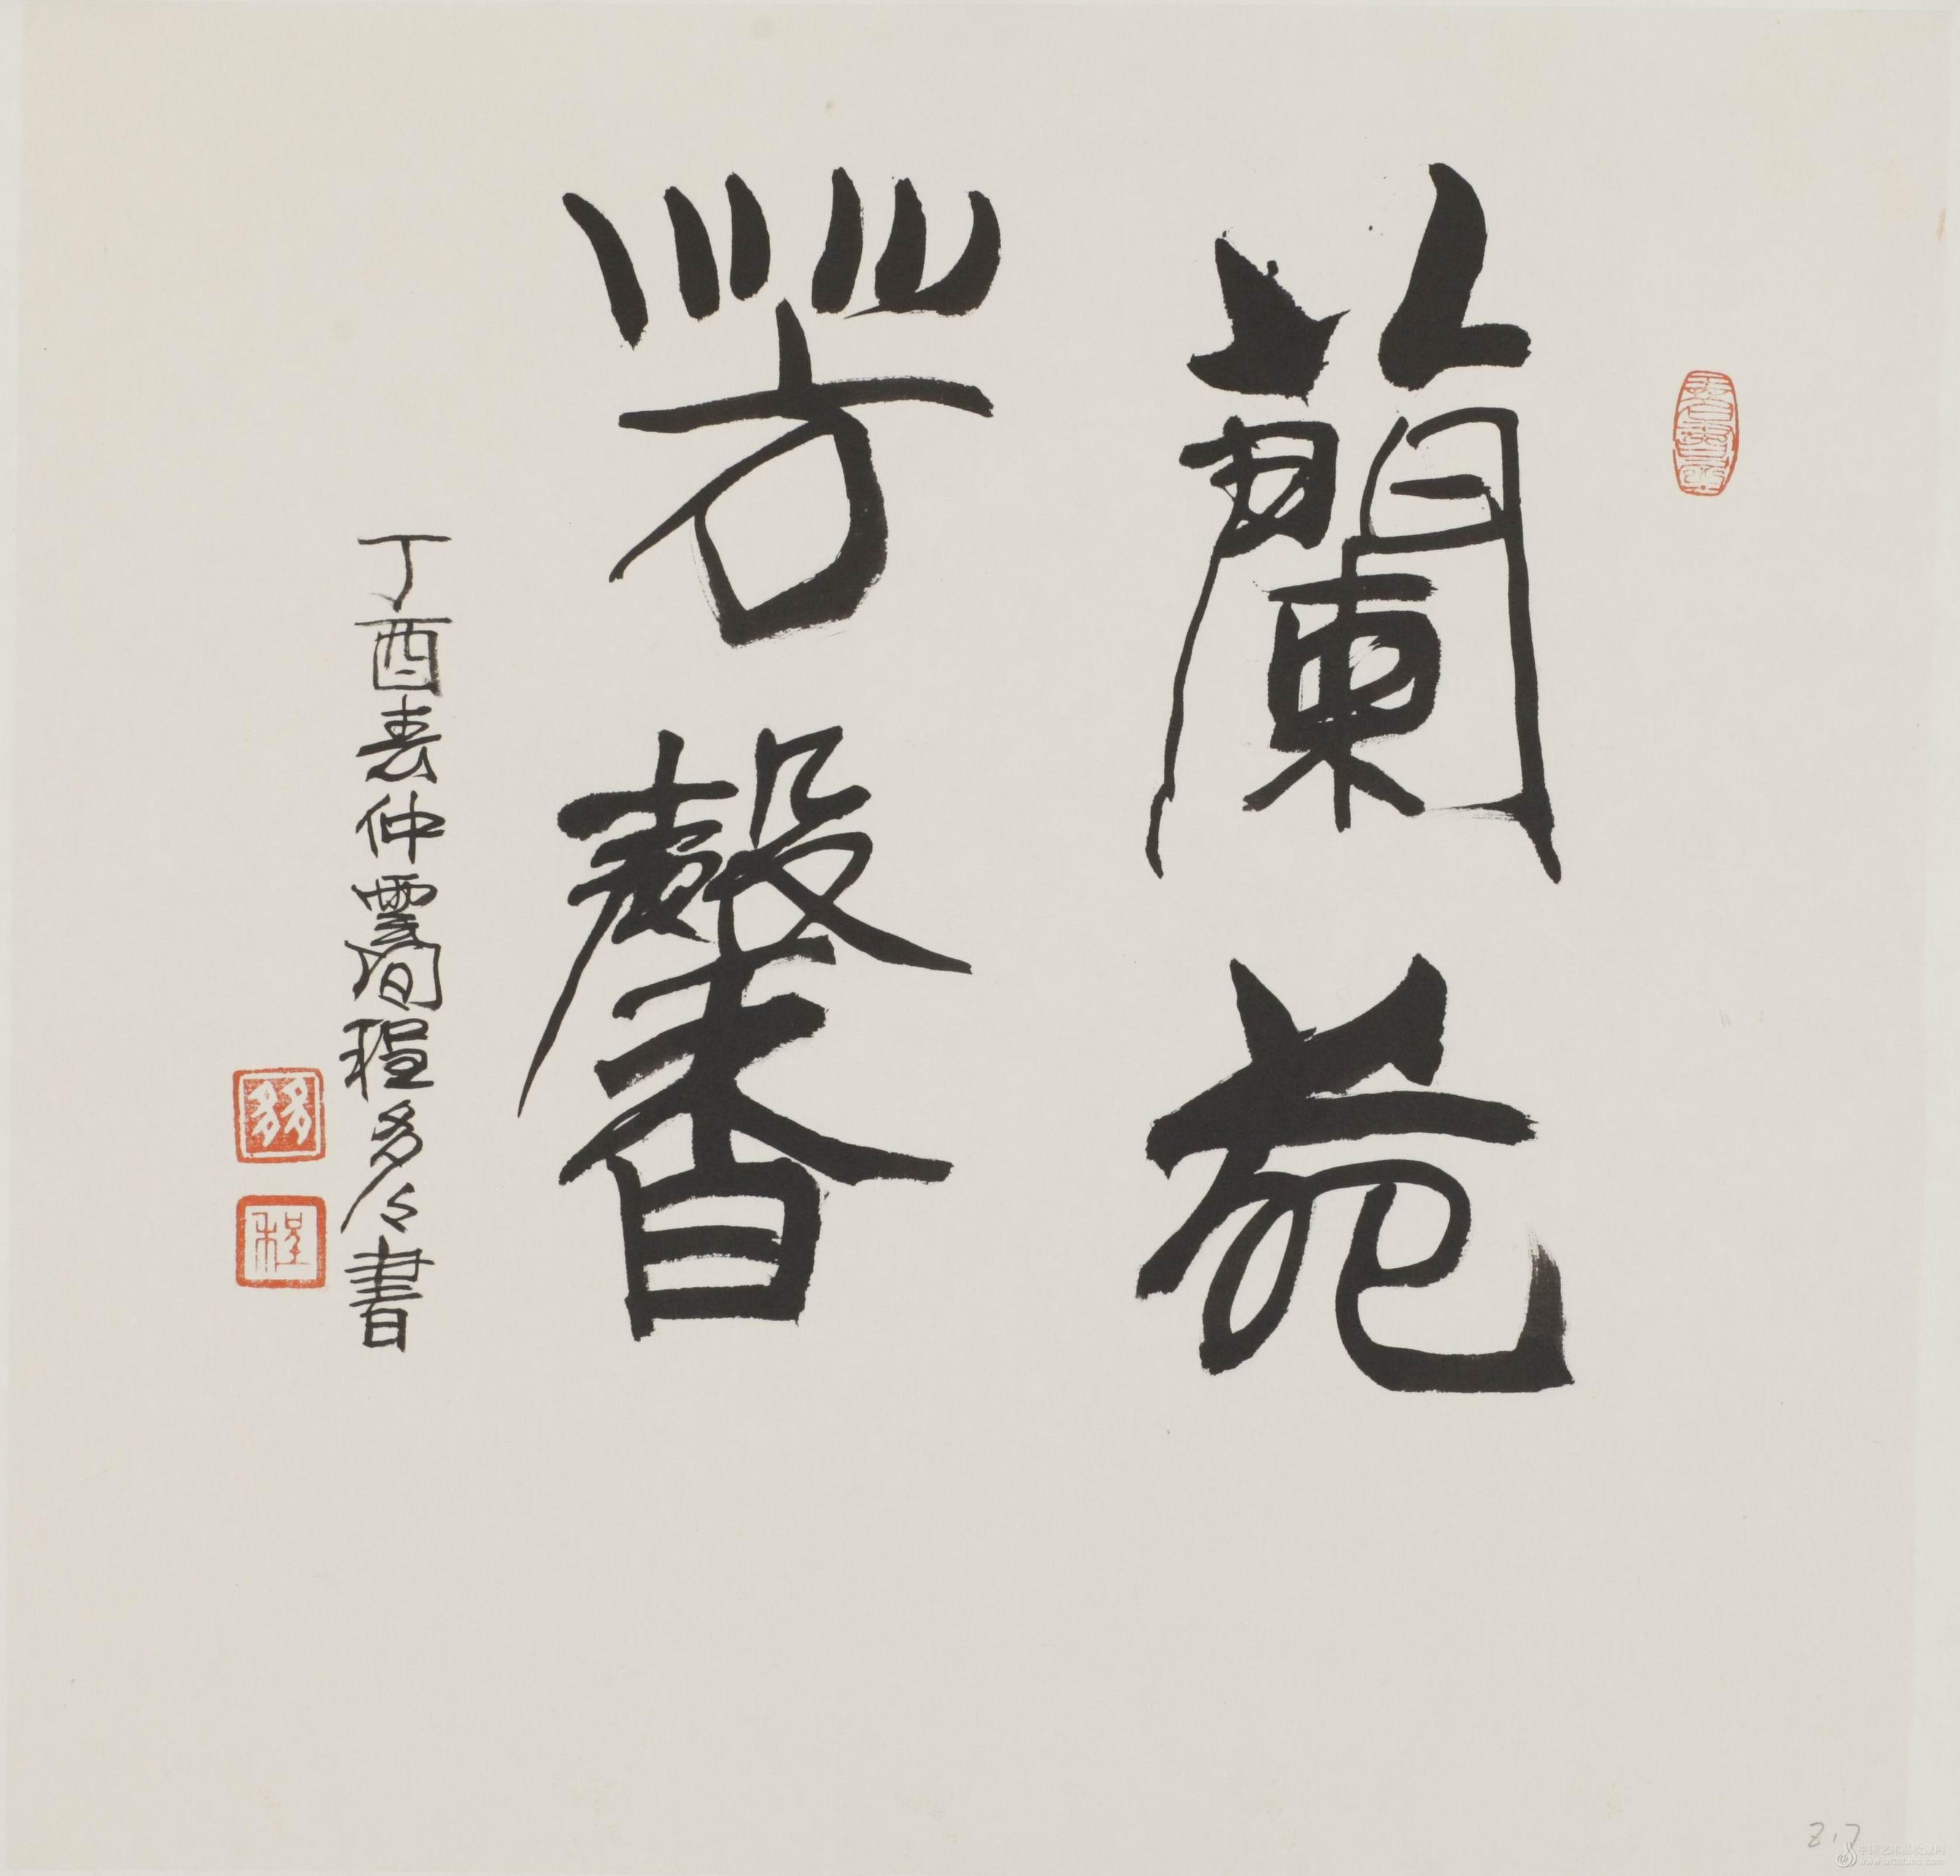 蘭苑
芳馨
丁酉春仲雲間程多多書
多多
程